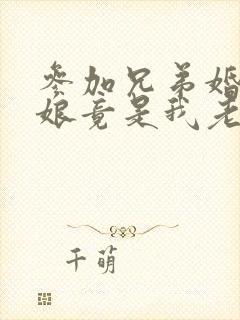 参加兄弟婚
娘竟是我老
千萌